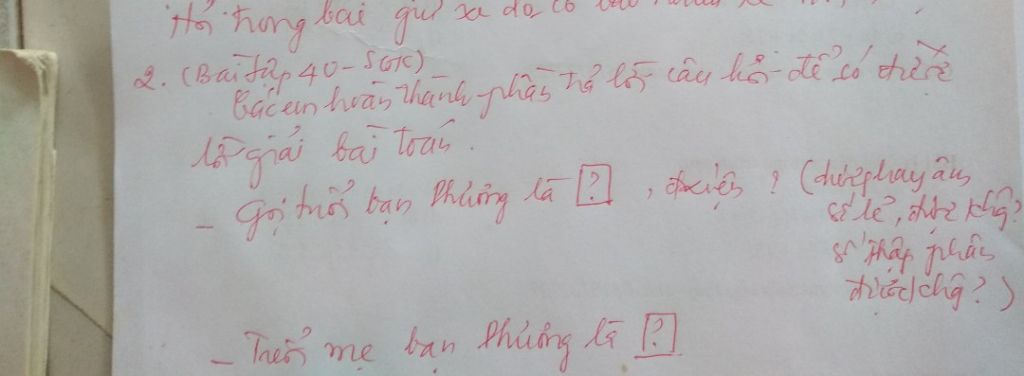 Hỏi trong bài gửi xe đã có
2. (Bài tập 40 - SGK)
Các em hoàn thành phần trả lời câu hỏi để có được
lời giải bài toán.
- Gọi tuổi bạn Phương là [?], đkiện ? (dương hay âm
số lẻ, được không?
số thập phân
được không?)
- Tuổi mẹ bạn Phương là [?]